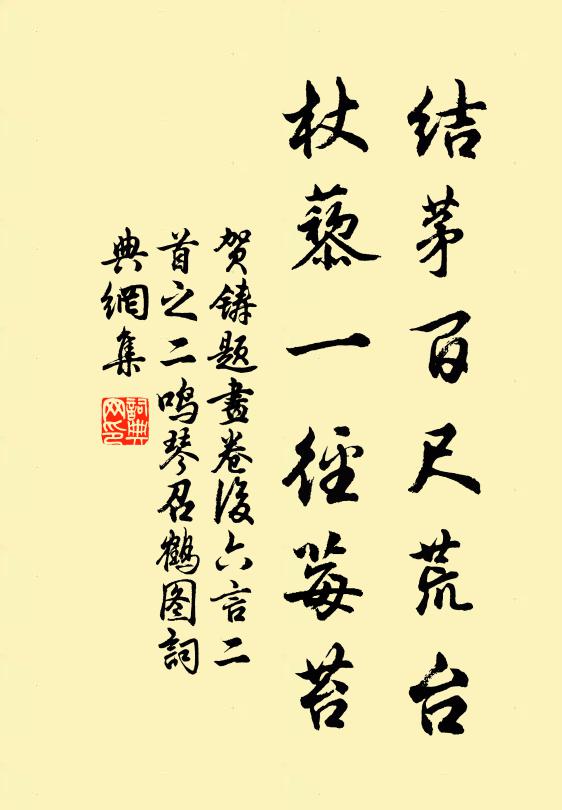 结茅百尺荒台
杖藜一径莓苔
贺铸题画卷后六言二
首之二鸣琴召鹤图词
典網集
詞典
网印